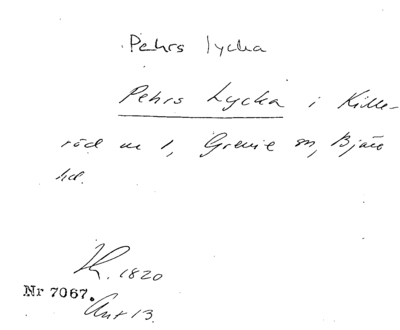 Pehrs lycka
Pehrs Lycka i Kille-
röd nr 1, Grevie sn, Bjäre
hd.
1820
Nr 7067.
Akt 13.